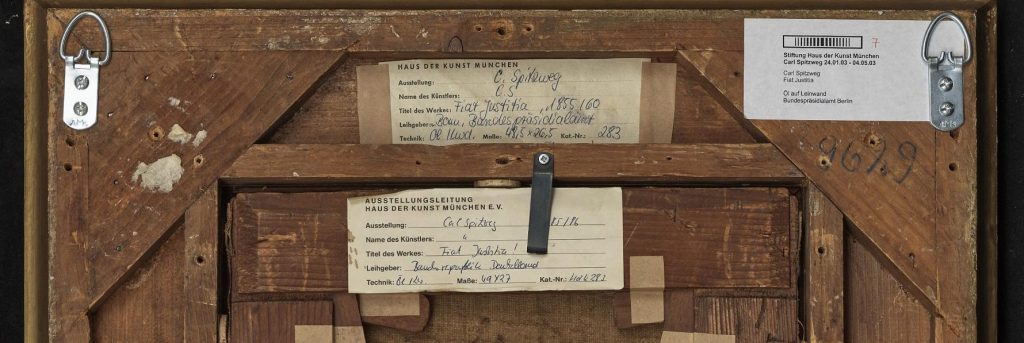 HAUS DER KUNST MÜNCHEN
Ausstellung: C. Spitzweg
Name des Künstlers: C. S
Titel des Werkes: Fiat Justitia, 1855/60
Leihgeber: Bonn, Bundespräsidialamt
Technik: Öl lwd. Maße: 49,5 x 26,5 Kat.-Nr.: 283
7
Stiftung Haus der Kunst München
Carl Spitzweg 24.01.03 - 04.05.03
Carl Spitzweg
Fiat Justitia
Öl auf Leinwand
Bundespräsidialamt Berlin
967.9
AUSSTELLUNGSLEITUNG
HAUS DER KUNST MÜNCHEN E.V.
Ausstellung: Carl Spitzweg 85/86
Name des Künstlers: "
Titel des Werkes: Fiat Justitia! "
Leihgeber: Bundesrepublik Deutschland
Technik: Öl lw. Maße: 49x27 Kat.-Nr.: 283